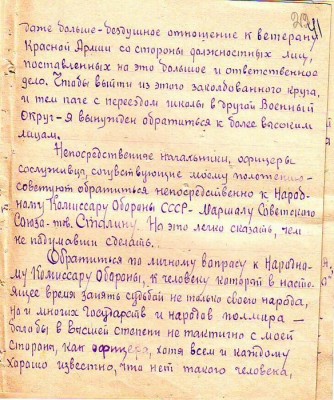 даже больше - бездушное отношение к ветерану
Красной Армии со стороны должностных лиц,
поставленных на это большое и ответственное
дело. Чтобы выйти из этого заколдованного круга,
и тем паче с переездом школы в другой Военный
Округ - я вынужден обратиться к более высоким
лицам.
Непосредственные начальники, офицеры
сослуживцы, сочувствующие моему положению -
советуют обратиться непосредственно к Народ-
ному Комиссару Обороны СССР - Маршалу Советского
Союза - тов. Сталину. Но это легко сказать, чем
не подумавши сделать.
Обратиться по личному вопросу к Народно-
му Комиссару Обороны, к человеку который в насто-
ящее время занять судьбой не только своего народа,
но и многих Государств и народов полмира -
было бы в высшей степени не тактично с моей
стороны, как офицера, хотя всем и каждому
хорошо известно, что нет такого человека,